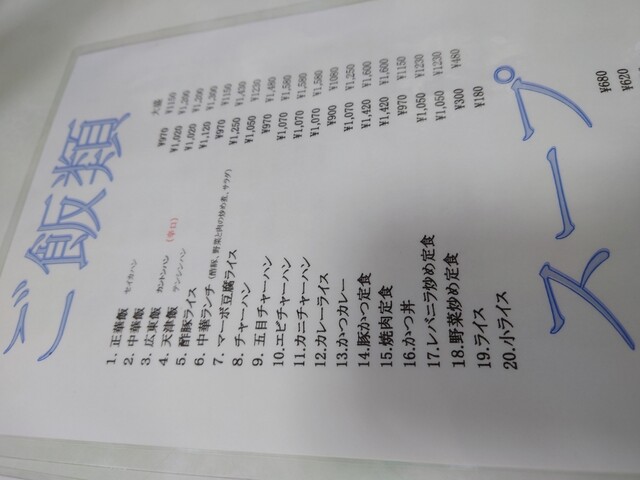 ご飯類
大盛
1. 正華飯 セイカハン ¥970 ¥1150
2. 中華飯 ¥1,020 ¥1,200
3. 広東飯 カントンハン (辛口) ¥1,020 ¥1,200
4. 天津飯 テンシンハン ¥1,120 ¥1,300
5. 酢豚ライス ¥970 ¥1150
6. 中華ランチ (酢豚、野菜と肉の炒め煮、サラダ) ¥1,250 ¥1,430
7. マーボ豆腐ライス ¥1,050 ¥1230
8. チャーハン ¥970 ¥1,480
9. 五目チャーハン ¥1,070 ¥1,580
10.エビチャーハン ¥1,070 ¥1,580
11.カニチャーハン ¥1,070 ¥1,580
12.カレーライス ¥900 ¥1080
13.かつカレー ¥1,070 ¥1,250
14.豚かつ定食 ¥1,420 ¥1,600
15.焼肉定食 ¥1,420 ¥1,600
16.かつ丼 ¥970 ¥1150
17.レバニラ炒め定食 ¥1,050 ¥1230
18.野菜炒め定食 ¥1,050 ¥1230
19.ライス ¥300 ¥480
20.小ライス ¥180
スープ
¥680
¥620